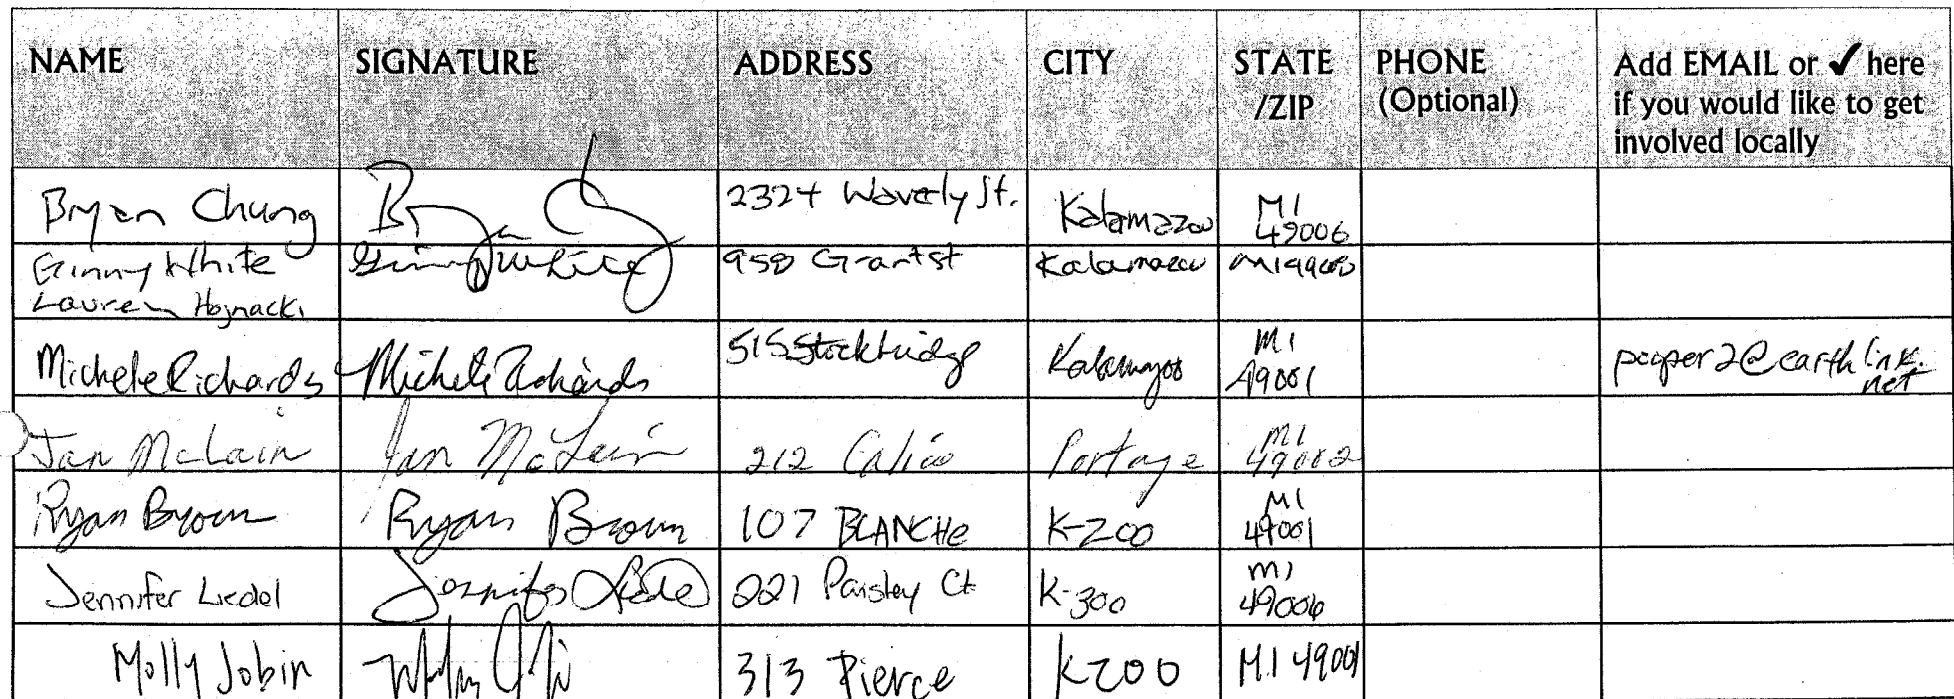 NAME SIGNATURE ADDRESS CITY STATE /ZIP PHONE (Optional) Add EMAIL or ✓ here if you would like to get involved locally
Bryan Chung 2324 Waverly St. Kalamazoo MI 49006
Ginny White Ginny White 958 Grant st Kalamazoo MI
Lauren Hojnacki
Michele Richards Michele Richards 515 Stockbridge Kalamazoo MI 49001 @earthlink.net
Jan McLain Jan McLain 212 Calico Portage MI 49002
Ryan Brown Ryan Brown 107 BLANCHe K-ZOO MI 49001
Jennifer Liedel Jennifer 221 Paisley Ct K-300 MI 49006
Molly Jobin 313 Pierce KZOO MI 49001